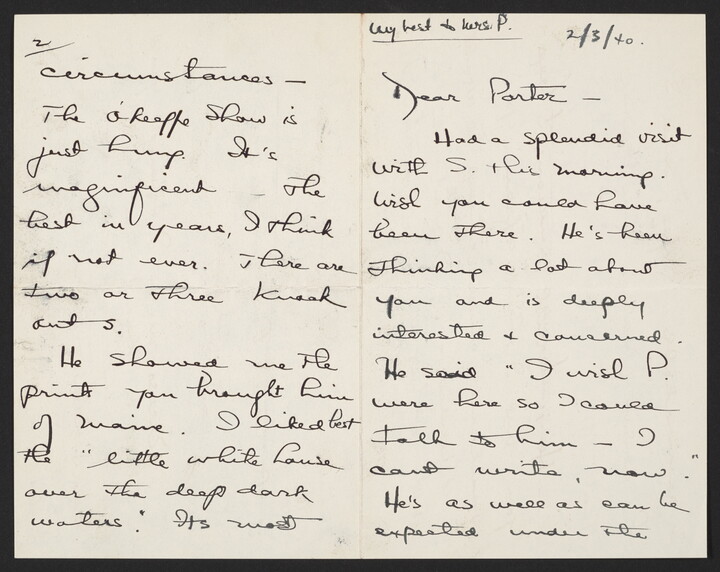 My best to Mrs. P.
2/3/40.
Dear Porter —
Had a splendid visit
with S. this morning.
Wish you could have
been there. He's been
thinking a lot about
you and is deeply
interested & concerned.
He said "I wish P.
were here so I could
talk to him — I
cant write, now."
He's as well as can be
expected under the
2
circumstances —
The O'Keeffe Show is
just hung. It's
magnificent — The
best in years, I think
if not ever. There are
two or three knock
outs.
He showed me the
prints you brought him
of Maine. I liked best
the "little white house
over the deep dark
waters." Its most